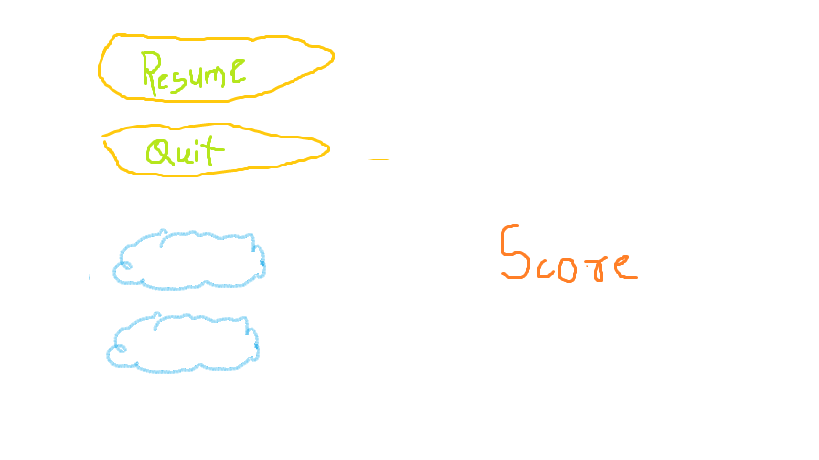 Resume
Quit
Score